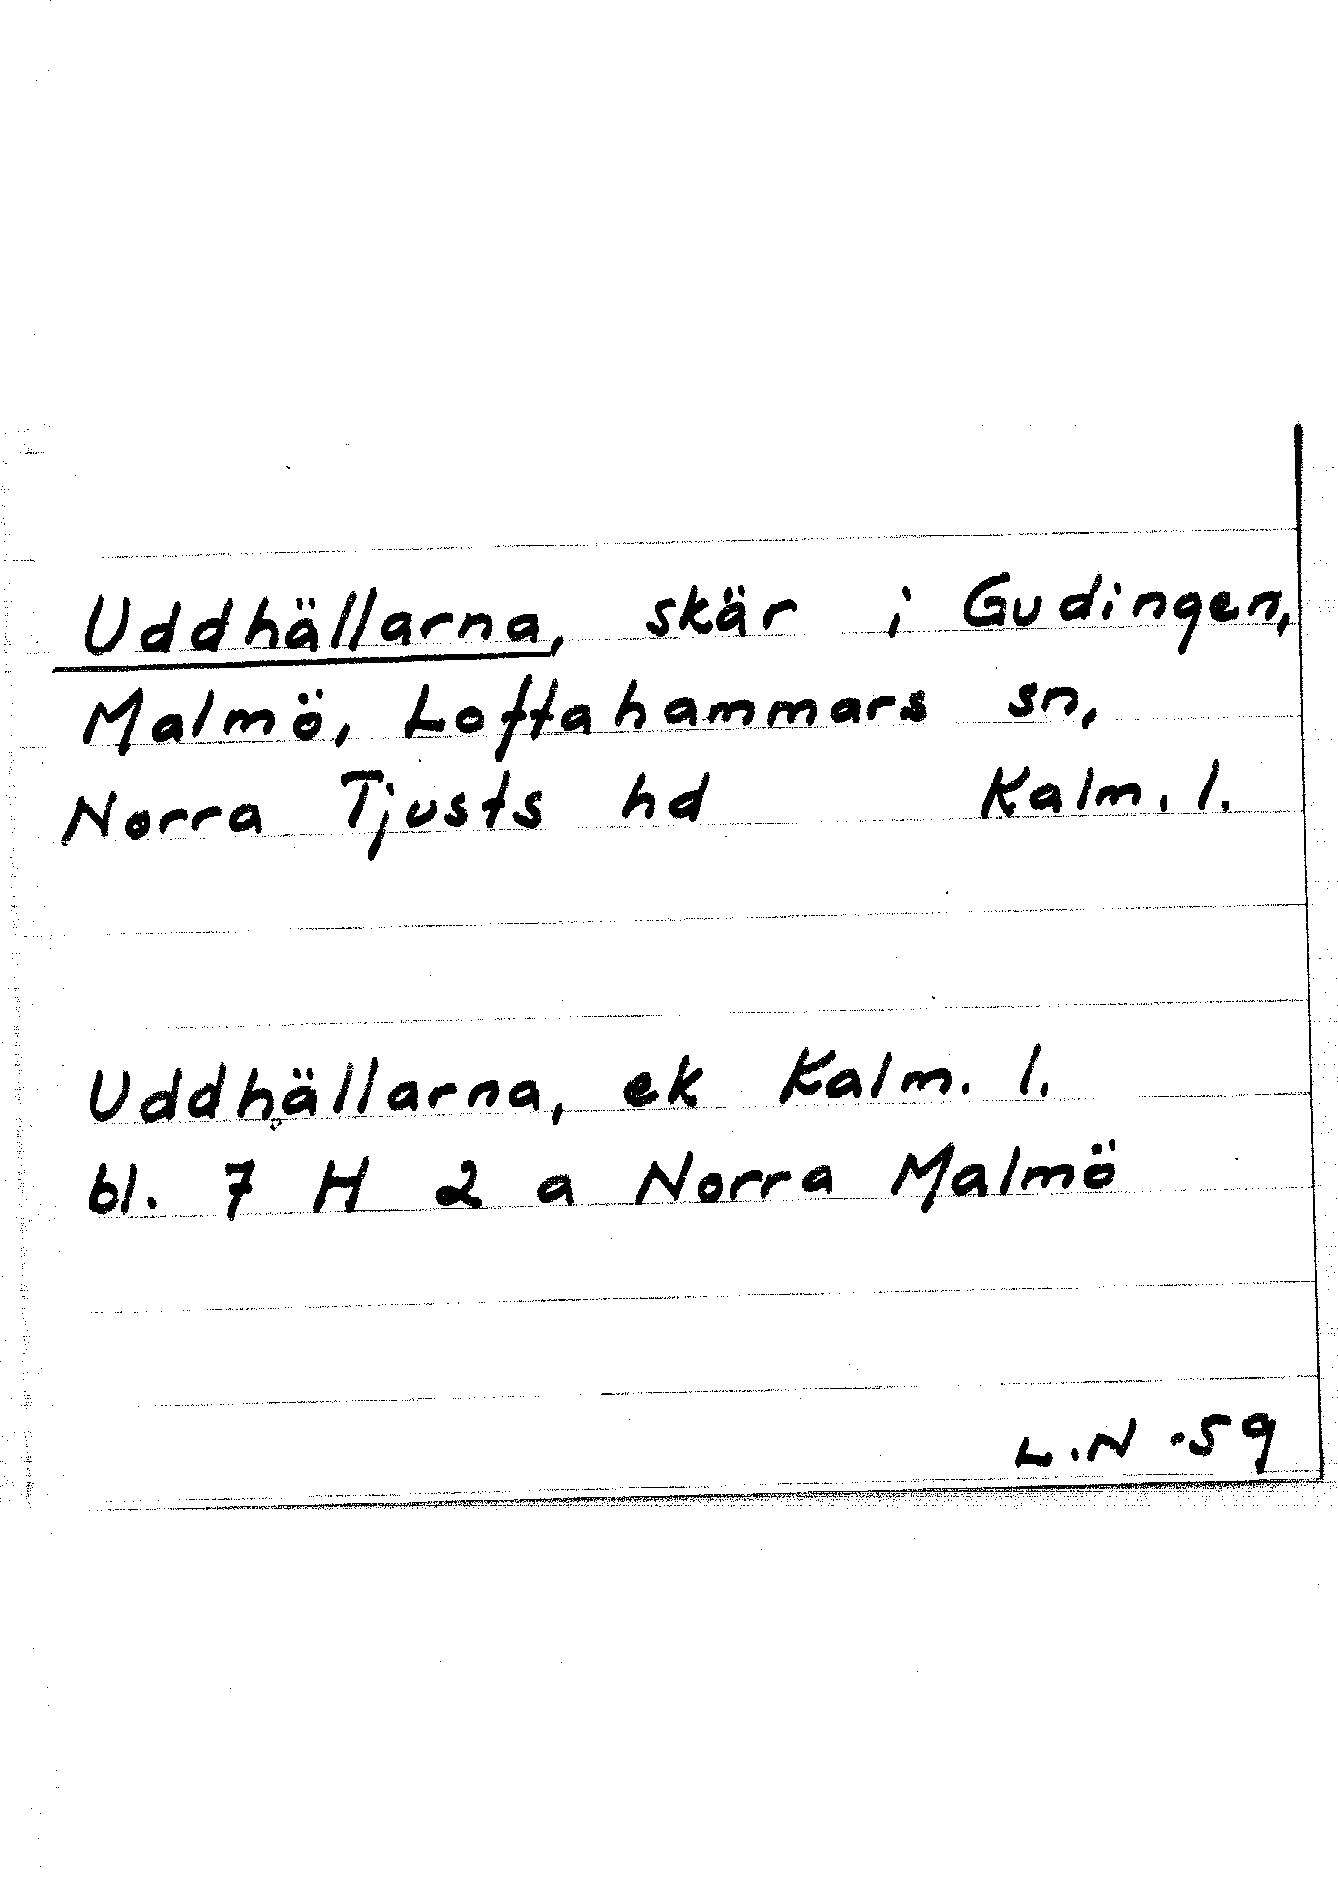 Uddhällarna, skär i Gudingen,
Malmö, Loftahammars sn,
Norra Tjusts hd Kalm. l.
Uddhällarna, ek Kalm. l.
bl. 7 H 2 a Norra Malmö
L.N -59